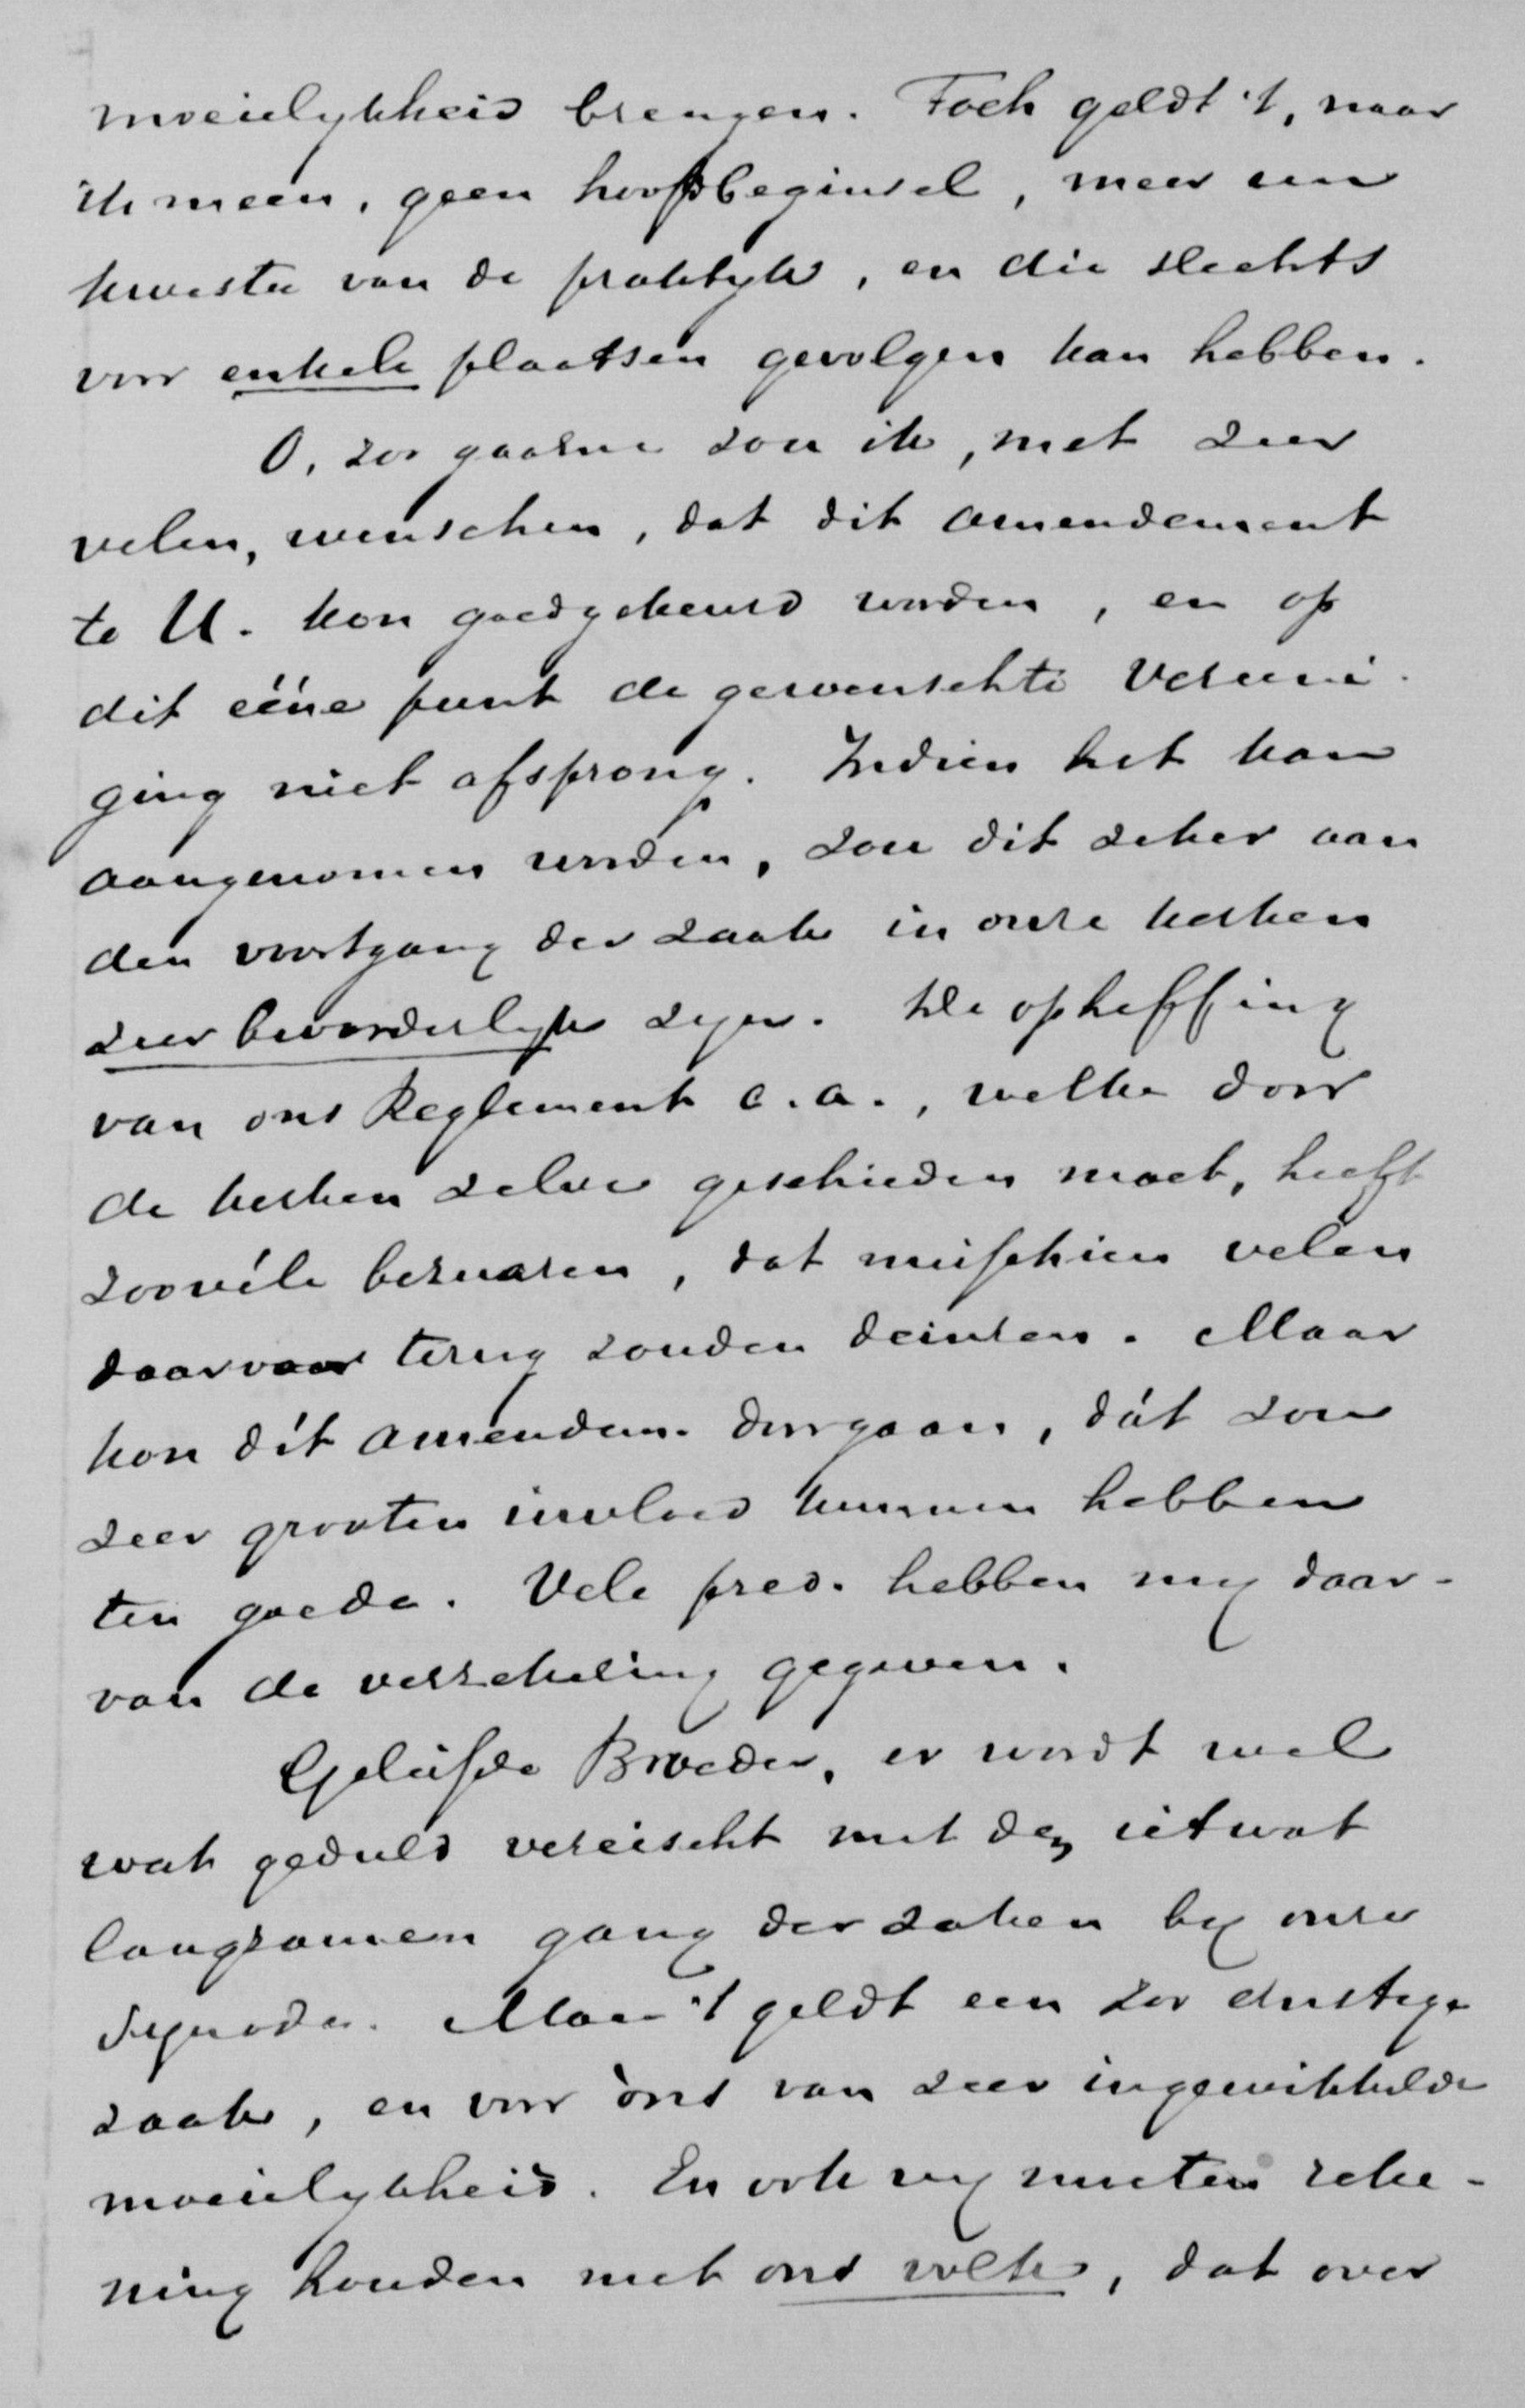 moeielykheid brengen. Toch geldt 't, naar
ik meen, geen hoofdbeginsel, meer een
kwestie van de praktyk, en die slechts
voor enkele plaatsen gevolgen kan hebben.
O, zoo gaarne zou ik, met zeer
velen, wenschen, dat dit amendement
te U. kon goedgekeurd worden, en op
dit ééne punt de gewenschte Vereeni-
ging niet afsprong. Indien het kan
aangenomen worden, zou dit zeker aan
den voortgang der zaak in onze kerken
zeer bevorderlyk zyn. De opheffing
van ons Reglement c.a., welke door
de kerken zelve geschieden moet, heeft
zoovéle bezwaren, dat misschien velen
daarvoor terug zouden deinzen. Maar
kon dit amendem. doorgaan, dát zou
zeer grooten invloed kunnen hebben
ten goede. Vele pred. hebben my daar-
van de verzekering gegeven.
Geliefde Broeder, er wordt wel
wat geduld vereischt met den ietwat
langzamen gang der zaken by onze
Synoden. Maar 't geldt een zoo ernstige
zaak, en voor óns van zeer ingewikkelde
moeielykheid. En ook wy moeten reke-
ning houden met ons volk, dat over